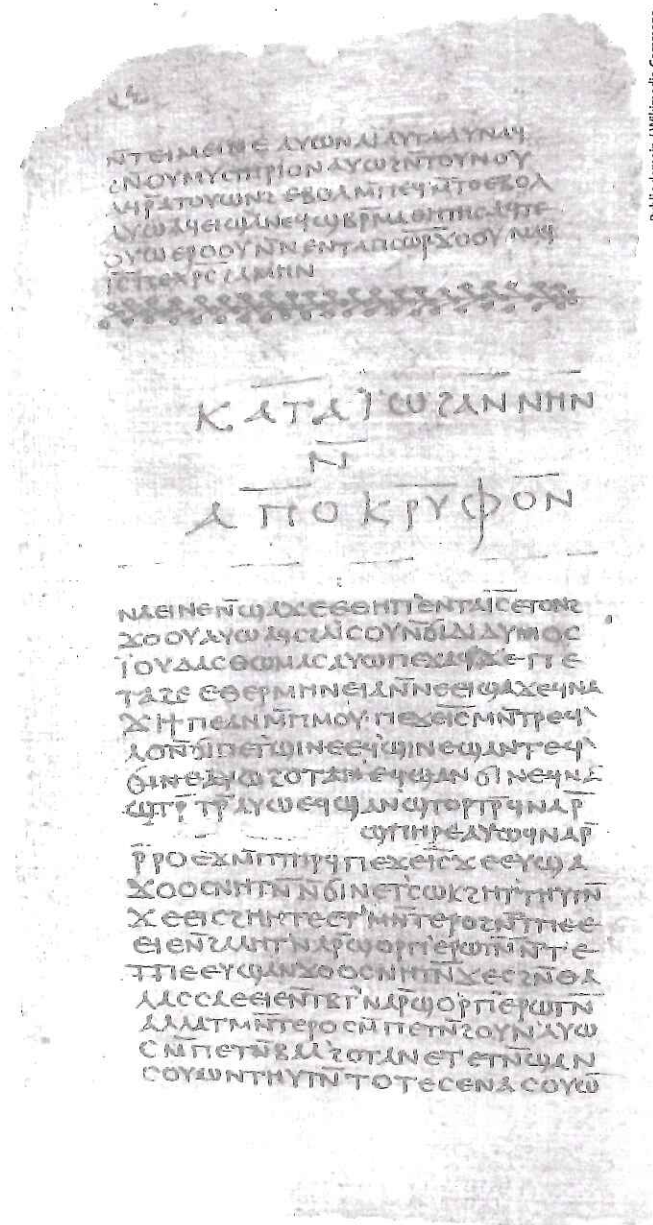 ⲛ̄ⲧⲉⲓⲙⲉⲓⲛⲉⲁⲩⲱⲛⲁⲓⲁⲩⲧⲁⲁⲩⲛⲁϥ
ϩⲛⲟⲩⲙⲩⲥⲧⲏⲣⲓⲟⲛⲁⲩⲱϩⲛⲧⲟⲩⲛⲟⲩ
ⲁϥⲣⲁⲧⲟⲩⲱⲛϩⲉⲃⲟⲗⲙⲡⲉϥⲙ̄ⲧⲟⲉⲃⲟⲗ
ⲁⲩⲱⲁϥⲉⲓϣⲁⲛⲉϥϣⲃⲣⲙⲁⲑⲏⲧⲏⲥⲁϥⲧⲉ
ⲟⲩⲱⲉⲣⲟⲟⲩⲛ̄ⲛⲉⲛⲧⲁⲡⲥⲱ̅ⲣ̅ϫⲟⲟⲩⲛⲁϥ
ⲓ̅ⲥ̅ⲡⲉⲭ̅ⲣ̅ⲥ̅ϩⲁⲙⲏⲛ
ⲕⲁⲧⲁⲓ̈ⲱϩⲁⲛⲛⲏⲛ
ⲛ̄
ⲁⲡⲟⲕⲣⲩⲫⲟⲛ
ⲛⲁⲉⲓⲛⲉⲛ̄ϣⲁϫⲉⲉⲑⲏⲡⲉⲛⲧⲁⲓ̅ⲥ̅ⲉⲧⲟⲛϩ
ϫⲟⲟⲩⲁⲩⲱⲁϥⲥϩⲁⲓⲥⲟⲩⲛ̄ϭⲓⲇⲓⲇⲩⲙⲟⲥ
ⲓ̈ⲟⲩⲇⲁⲥⲑⲱⲙⲁⲥⲁⲩⲱⲡⲉϫⲁϥϫⲉⲡⲉ
ⲧⲁϩⲉⲉⲑⲉⲣⲙⲏⲛⲉⲓⲁⲛ̄ⲛⲉⲉⲓϣⲁϫⲉϥⲛⲁ
ϫⲓϯⲡⲉⲁⲛⲙ̄ⲡⲙⲟⲩⲡⲉϫⲉⲓ̅ⲥ̅ⲙⲛ̄ⲧⲣⲉϥ
ⲗⲟⲛ̄ϭⲓⲡⲉⲧϣⲓⲛⲉⲉϥϣⲓⲛⲉϣⲁⲛⲧⲉϥ
ϭⲓⲛⲉⲁⲩⲱϩⲟⲧⲁⲛⲉϥϣⲁⲛϭⲓⲛⲉϥⲛⲁ
ϣⲧⲣ̄ⲧⲣ̄ⲁⲩⲱⲉϥϣⲁⲛϣⲧⲟⲣⲧⲣ̄ϥⲛⲁⲣ̄
ϣⲡⲏⲣⲉⲁⲩⲱϥⲛⲁⲣ̄
ⲣ̄ⲣⲟⲉϫⲙ̄ⲡⲧⲏⲣϥⲡⲉϫⲉⲓ̅ⲥ̅ϫⲉⲉⲩϣⲁ
ϫⲟⲟⲥⲛⲏⲧⲛ̄ⲛ̄ϭⲓⲛⲉⲧⲥⲱⲕϩⲏⲧⲧⲏⲩⲧⲛ̄
ϫⲉⲉⲓⲥϩⲏⲏⲧⲉⲉⲧⲙⲛ̄ⲧⲉⲣⲟϩⲛ̄ⲧⲡⲉⲉ
ⲉⲓⲉⲛϩⲁⲗⲏⲧⲛⲁⲣ̄ϣⲟⲣⲡⲉⲣⲱⲧⲛ̄ⲛ̄ⲧⲉ
ⲧⲡⲉⲉⲩϣⲁⲛϫⲟⲟⲥⲛⲏⲧⲛ̄ϫⲉⲥϩⲛ̄ⲑⲁ
ⲗⲁⲥⲥⲁⲉⲉⲓⲉⲛⲧⲃⲧⲛⲁⲣ̄ϣⲟⲣⲡⲉⲣⲱⲧⲛ̄
ⲁⲗⲗⲁⲧⲙⲛ̄ⲧⲉⲣⲟⲥⲙ̄ⲡⲉⲧⲛ̄ϩⲟⲩⲛⲁⲩⲱ
ⲥⲙ̄ⲡⲉⲧⲛ̄ⲃⲁⲗϩⲟⲧⲁⲛⲉⲧⲉⲧⲛ̄ϣⲁⲛ
ⲥⲟⲩⲱⲛⲧⲏⲩⲧⲛ̄ⲧⲟⲧⲉⲥⲉⲛⲁⲥⲟⲩⲱ
Public domain / Wikimedia Commons